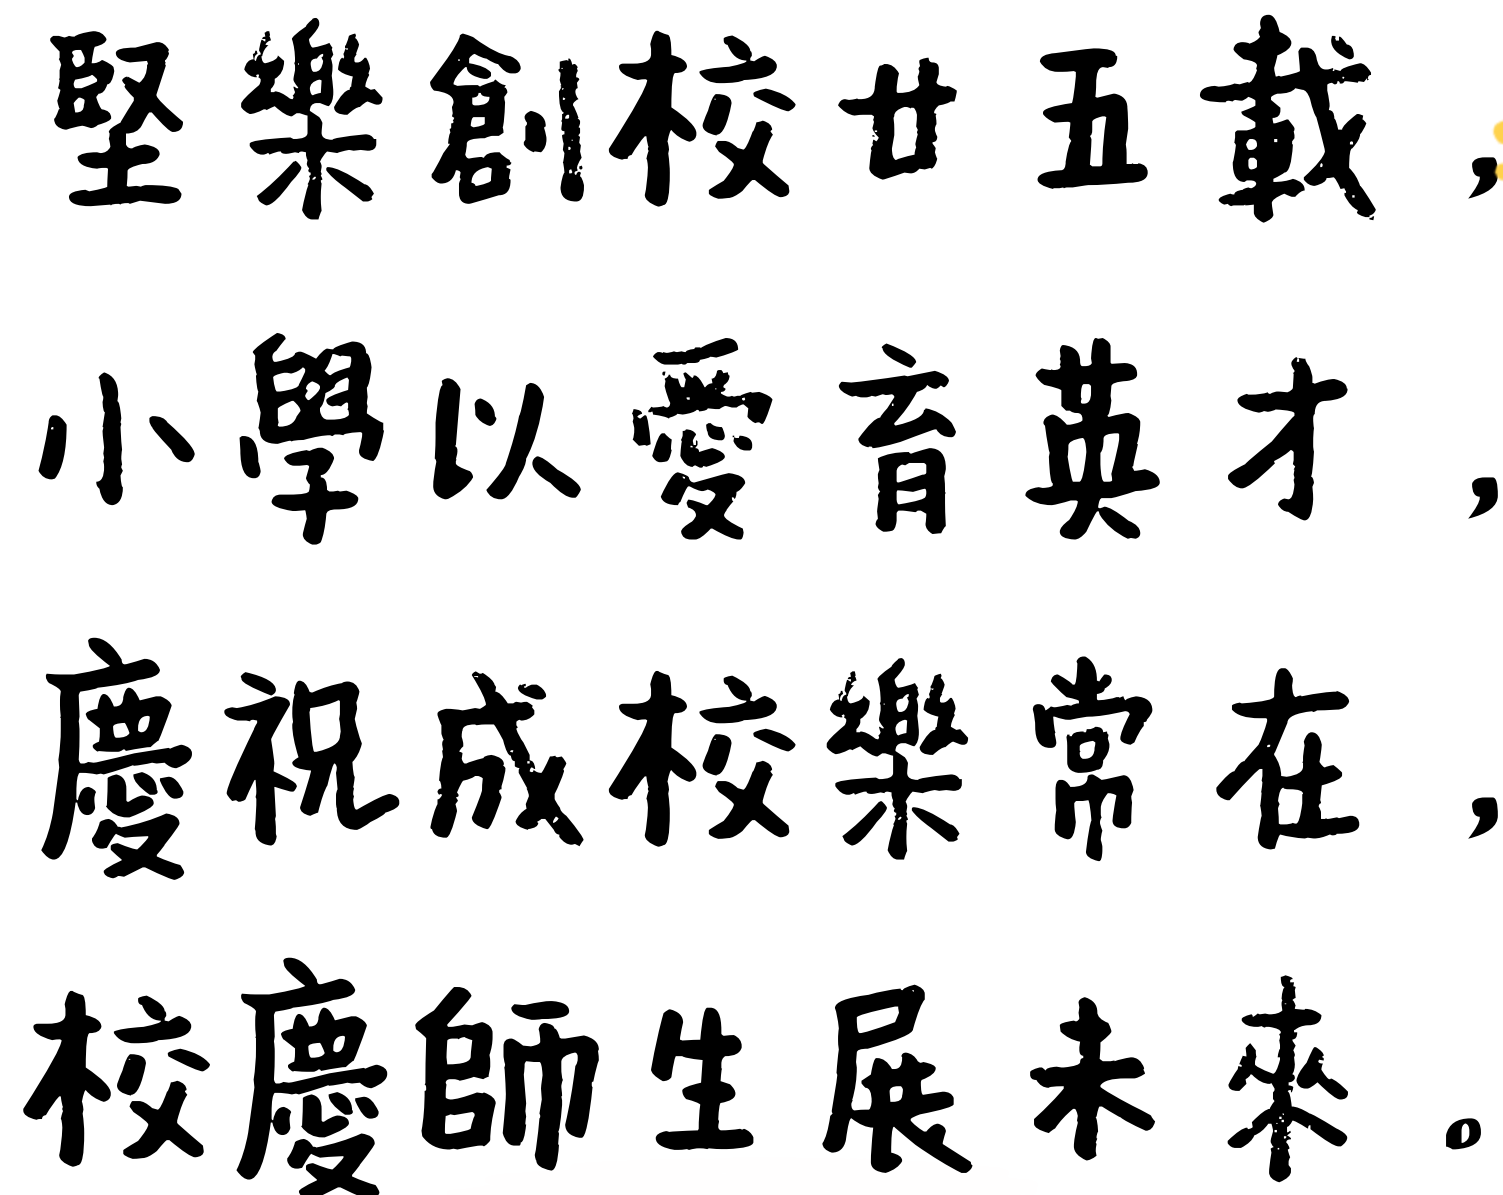 堅樂創校廿五載，
小學以愛育英才，
慶祝成校樂常在，
校慶師生展未來。